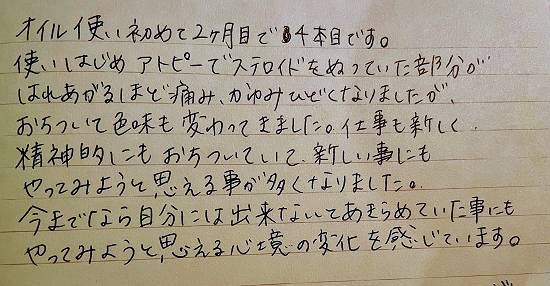 オイル使い初めて2ヶ月目で4本目です。
使いはじめ アトピーでステロイドをぬっていた部分が
はれあがるほど痛み、かゆみひどくなりましたが、
おちついて色味も変わってきました。仕事も新しく、
精神的にもおちついていて、新しい事にも
やってみようと思える事が多くなりました。
今までなら自分には出来ないてあきらめていた事にも
やってみようと思える心境の変化を感じています。